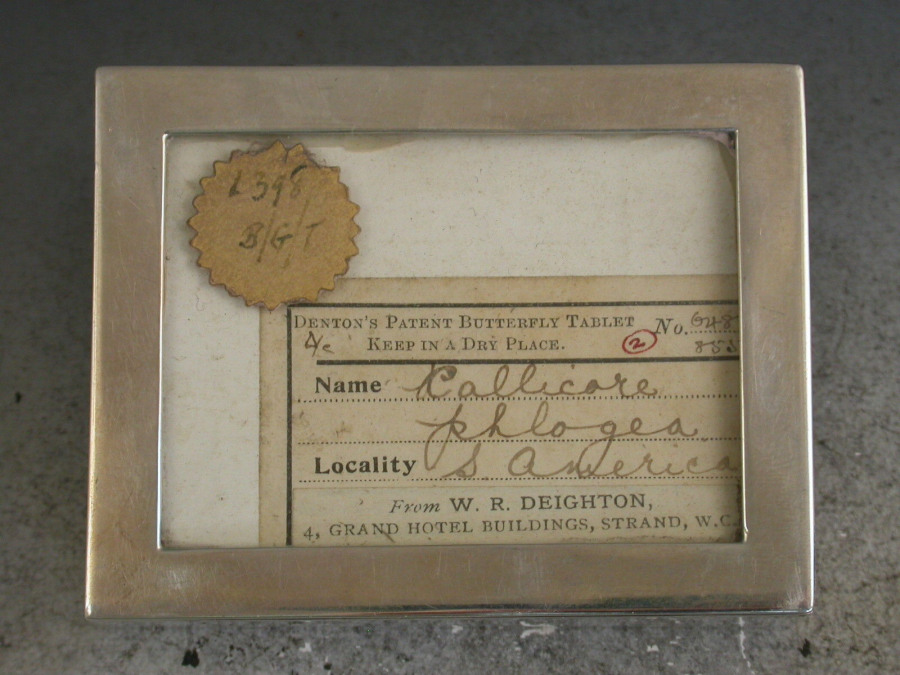 L398
B/G/T
DENTON'S PATENT BUTTERFLY TABLET
KEEP IN A DRY PLACE.
A/c
2
No. 648
855
Name Kallicore
phlogea
Locality S. America
From W. R. DEIGHTON,
4, GRAND HOTEL BUILDINGS, STRAND, W.C.